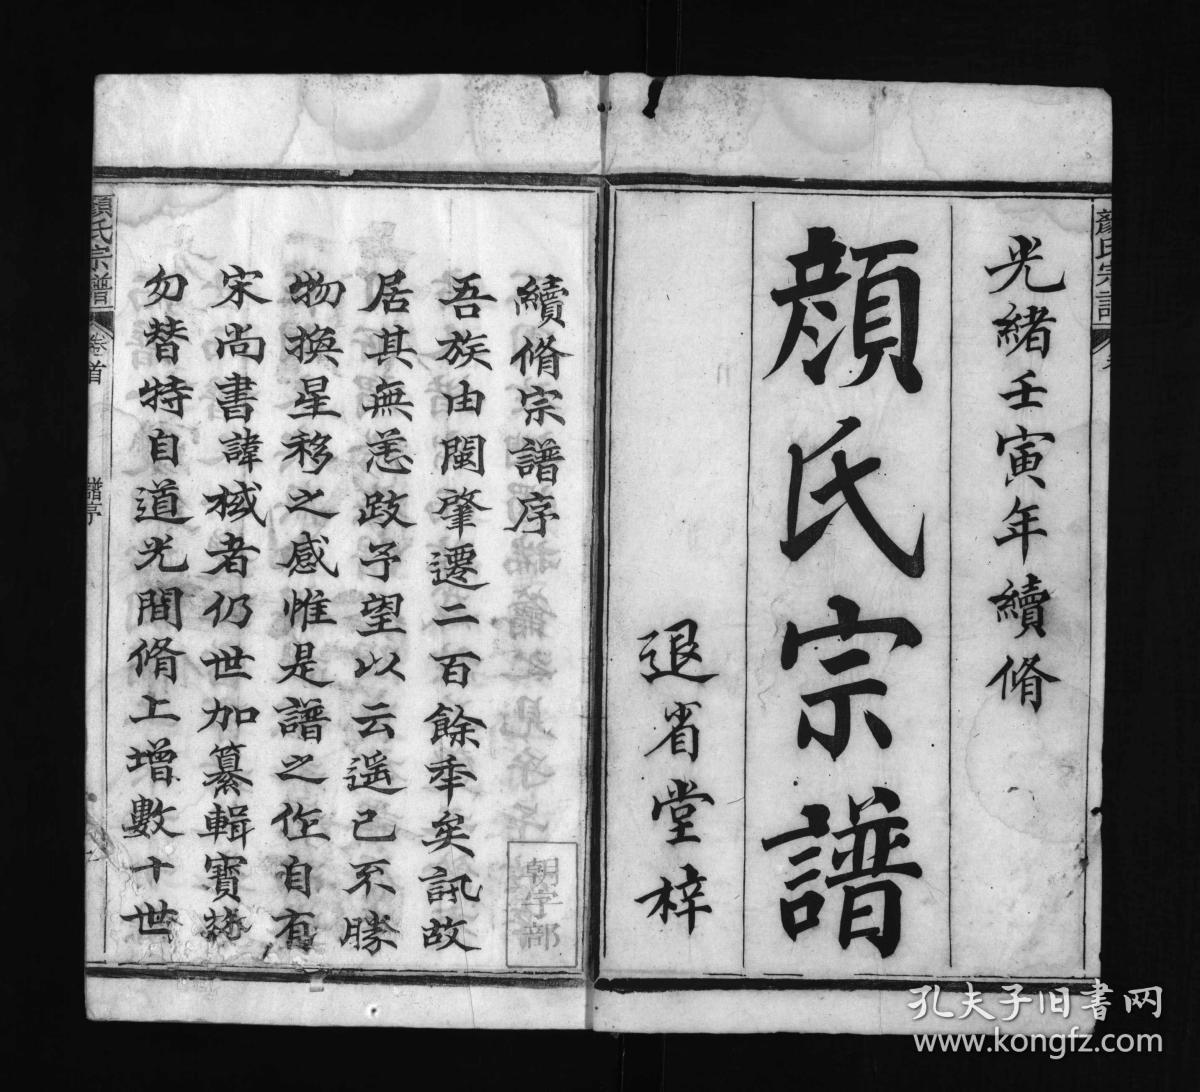 光緒壬寅年續脩
顏氏宗譜
退省堂梓
續脩宗譜序
吾族由閩肇遷二百餘年矣訊故
居其無恙跂予望以云遥已不勝
物換星移之感惟是譜之作自有
宋尚書諱棫者仍世加纂輯寶
勿替特自道光間脩上增數十世
顏氏宗譜
卷首
譜序
朝字部
孔夫子旧书网
www.kongfz.com